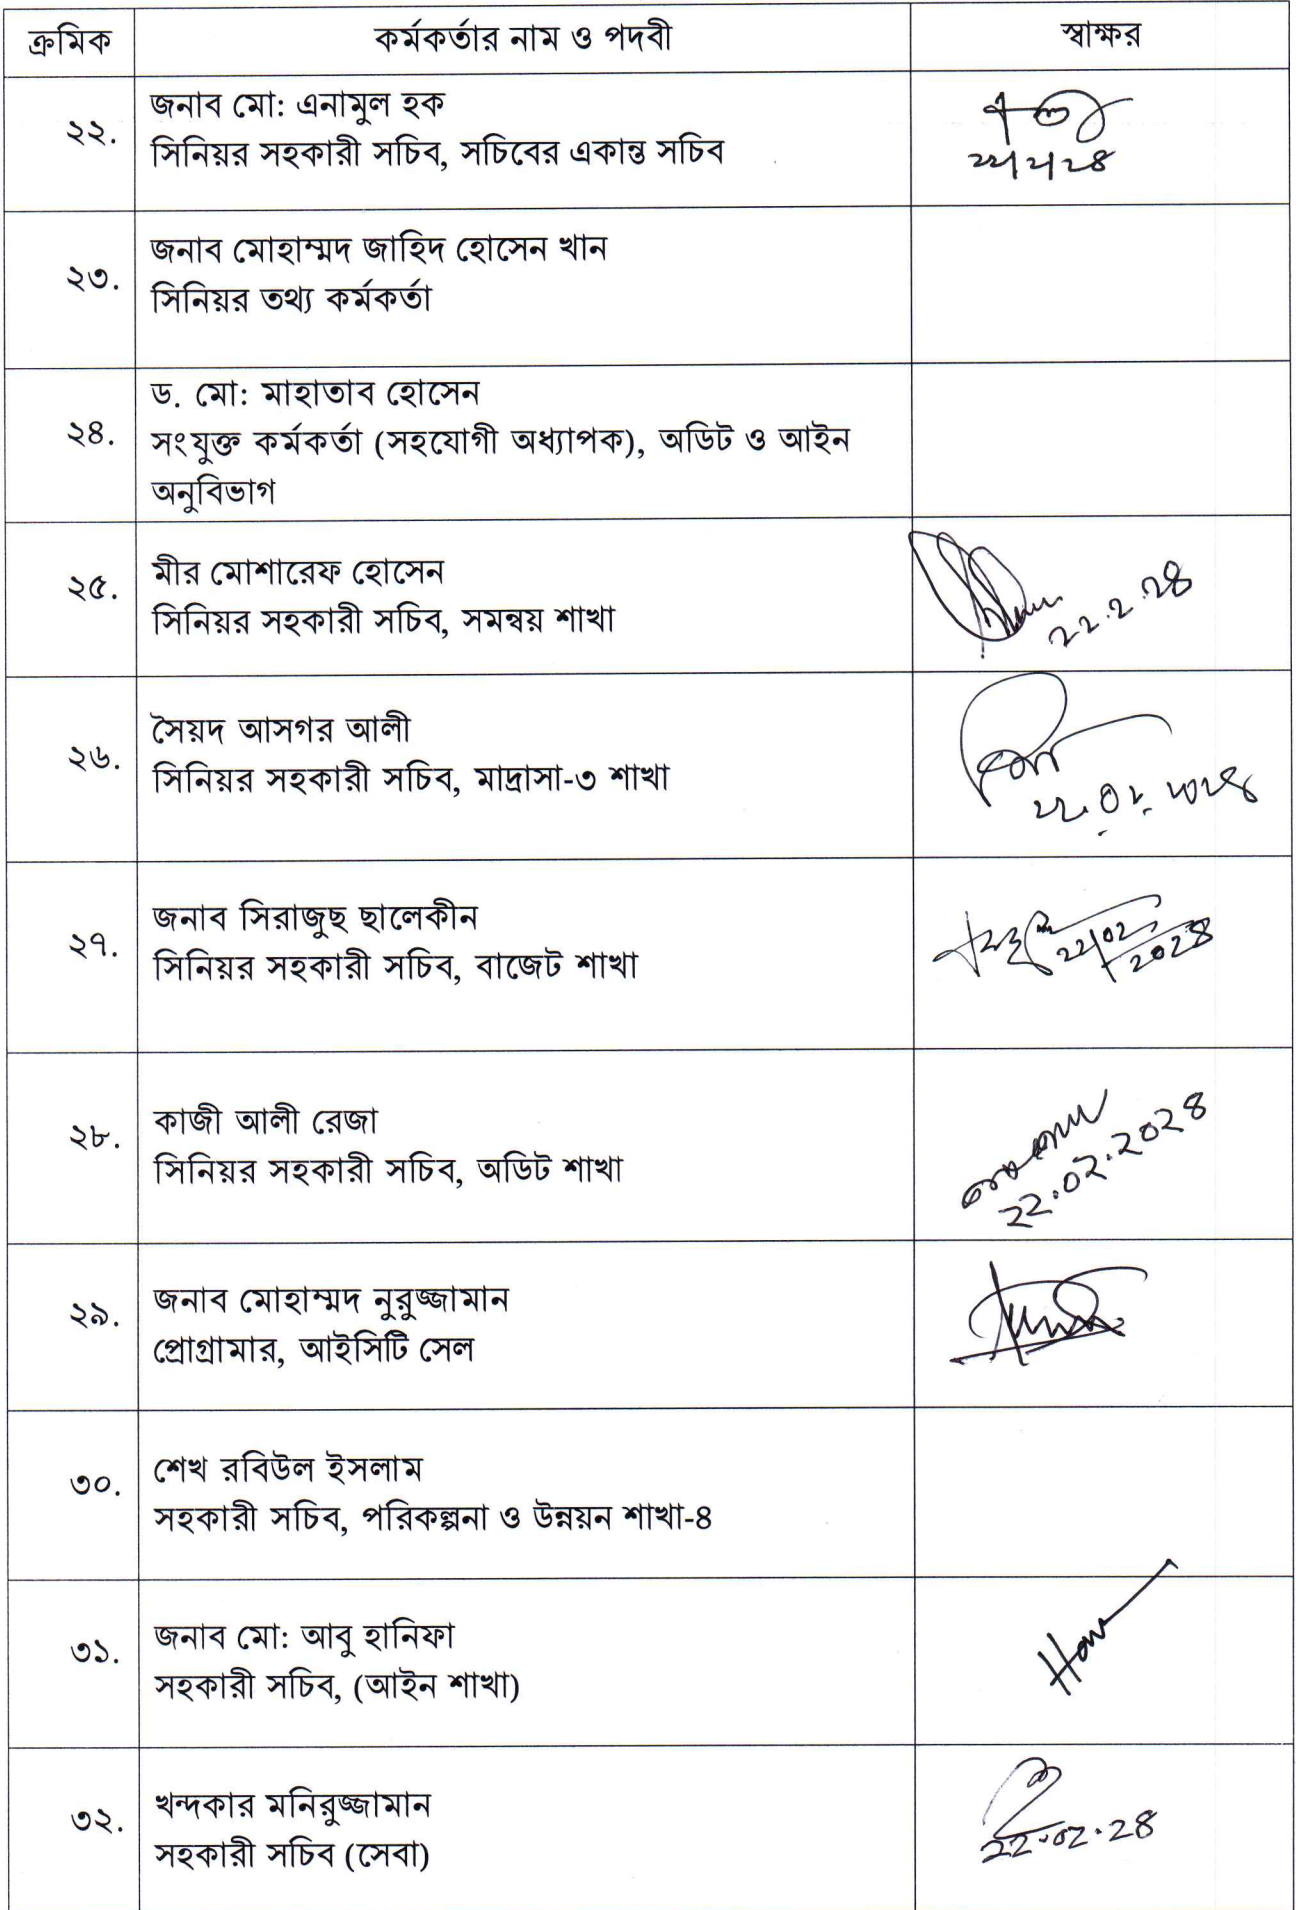 ক্রমিক কর্মকর্তার নাম ও পদবী স্বাক্ষর
২২. জনাব মো: এনামুল হক
সিনিয়র সহকারী সচিব, সচিবের একান্ত সচিব
২২/২/২৪
২৩. জনাব মোহাম্মদ জাহিদ হোসেন খান
সিনিয়র তথ্য কর্মকর্তা
২৪. ড. মো: মাহাতাব হোসেন
সংযুক্ত কর্মকর্তা (সহযোগী অধ্যাপক), অডিট ও আইন
অনুবিভাগ
২৫. মীর মোশারেফ হোসেন
সিনিয়র সহকারী সচিব, সমন্বয় শাখা
২২.২.২৪
২৬. সৈয়দ আসগর আলী
সিনিয়র সহকারী সচিব, মাদ্রাসা-৩ শাখা
২২.০২.২০২৪
২৭. জনাব সিরাজুছ ছালেকীন
সিনিয়র সহকারী সচিব, বাজেট শাখা
২২/০২/
২০২৪
২৮. কাজী আলী রেজা
সিনিয়র সহকারী সচিব, অডিট শাখা
২২.০২.২০২৪
২৯. জনাব মোহাম্মদ নুরুজ্জামান
প্রোগ্রামার, আইসিটি সেল
৩০. শেখ রবিউল ইসলাম
সহকারী সচিব, পরিকল্পনা ও উন্নয়ন শাখা-৪
৩১. জনাব মো: আবু হানিফা
সহকারী সচিব, (আইন শাখা)
৩২. খন্দকার মনিরুজ্জামান
সহকারী সচিব (সেবা)
২২.০২.২৪